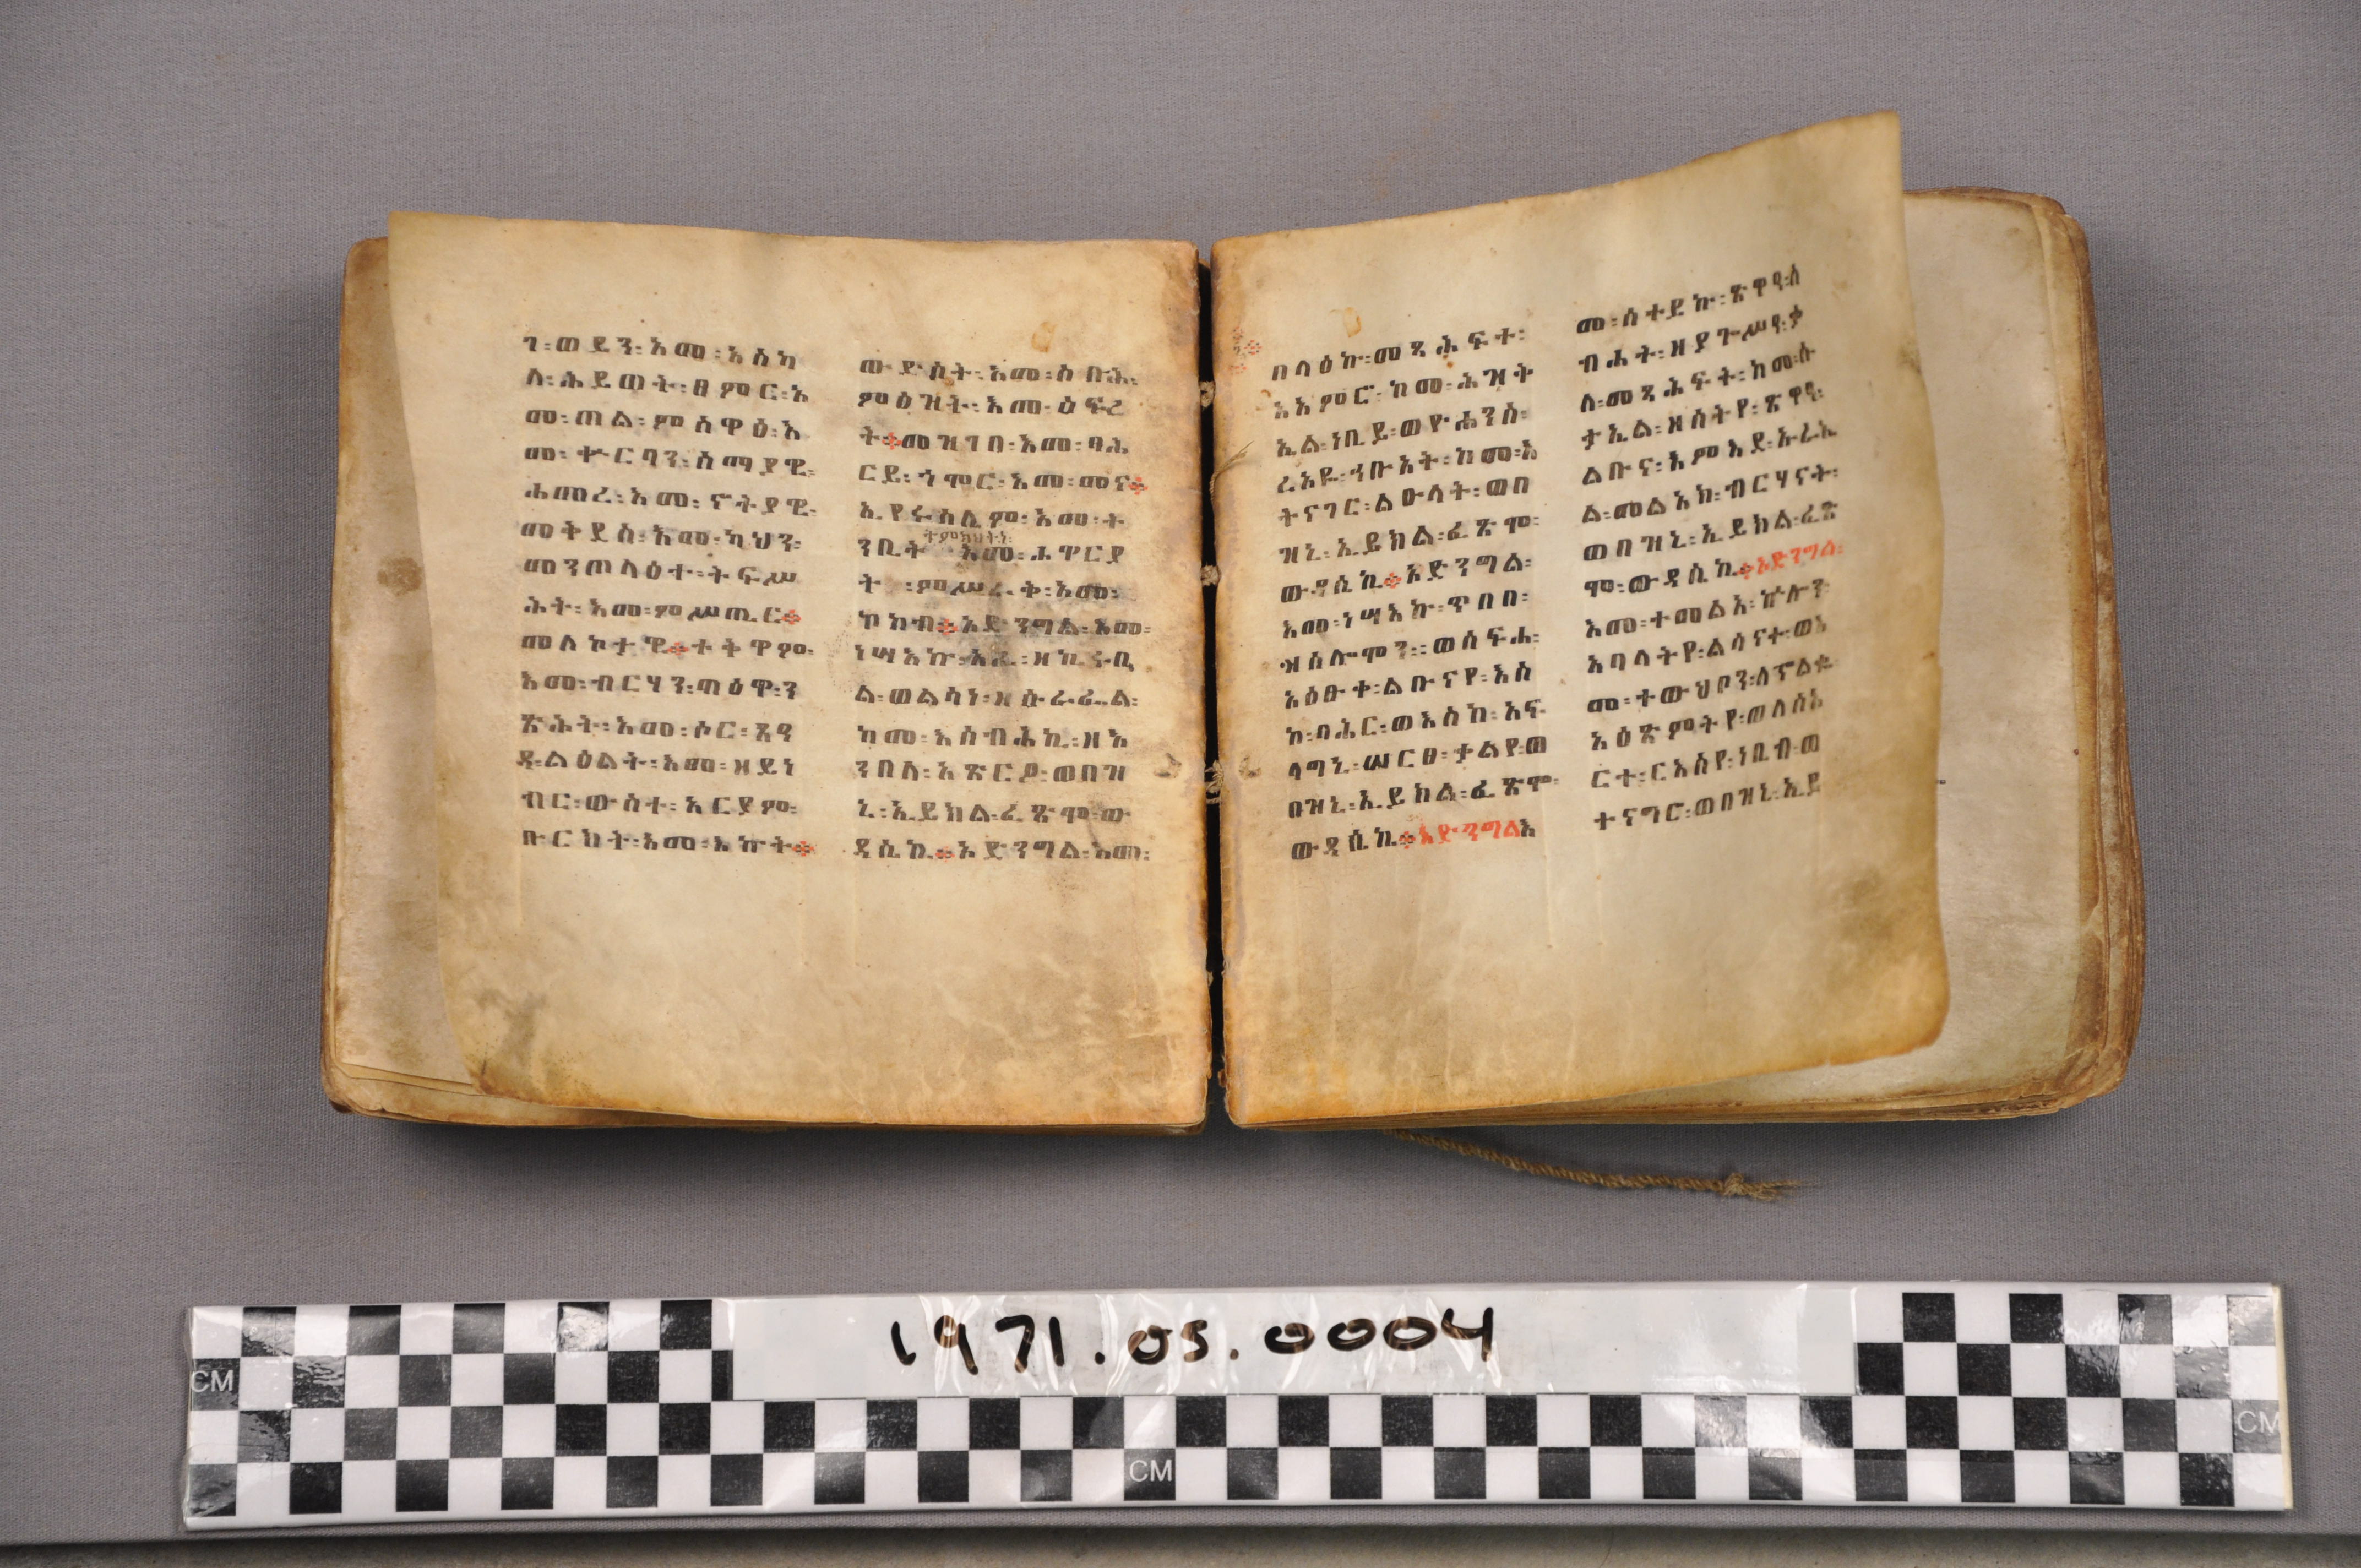 ን፡ወይን፡እመ፡አስካ
ል፡ሕይወት፡ፀምር፡እ
መ፡ጠል፡ምስዋዕ፡እ
መ፡ቍርባን፡ሰማያዊ፡
ሐመረ፡እመ፡ኖትያዊ፡
መትደስ፡እመ፡ካህን፡
መንጦላዕተ፡ትፍሥ
ሕት፡እመ፡ምሥጢር፨
መለኮታዊ፨ተትዋም፡
እመ፡ብርሃን፡ጣዕዋ፡ን
ጽሕት፡እመ፡ሶር፡ጸዓ
ዳ፡ልዕልት፡እመ፡ዘይነ
ብር፡ውስተ፡አርያም፡
ቡርክት፡እመ፡አኵት፨
ውድስት፡እመ፡ስቡሕ፡
ምዕዝት፡እመ፡ዕፍረ
ት፨መዝገበ፡እመ፡ባሕ
ርይ፡ጎሞር፡እመ፡መና፨
ኢየሩሳሌም፡እመ፡ት
ትምክህትነ፡
ንቢት እመ፡ሐዋርያ
ት ፡ምሥራቅ፡እመ፡
ኮከብ፨እድንግል፡እመ፡
ነሣእኩ፡አፈ፡ዘኪሩቤ
ል፡ወልሳነ፡ዘሱራፌል፡
ከመ፡እሰብሕኪ፡ዘእ
ንበለ፡አጽርዖ፡ወበዝ
ኒ፡ኢይክል፡ፈጽሞ፡ው
ዳሴኪ፨እድንግል፡እመ፡
በላዕኩ፡መጻሕፍተ፡
እእምር፡ከመ፡ሕዝት
ኤል፡ነቢይ፡ወዮሐንስ፡
ረአዬ፡ኅቡአት፡ከመ፡እ
ትናገር፡ልዑላት፡ወበ
ዝኒ፡ኢይክል፡ፈጽሞ፡
ውዳሴኪ፨እድንግል፡
እመ፡ነሣእኩ፡ጥበበ፡
ዝሰሎሞን፡፡ወሰፍሐ፡
አዕፁቀ፡ልቡናየ፡እስ
ከ፡ባሕር፡ወእስከ፡አፍ
ላግኒ፡ሠርፀ፡ቃልየ፡ወ
በዝኒ፡ኢይክል፡ፈጽሞ፡
ውዳሴኪ፨እድንግልእ
መ፡ሰተይኩ፡ጽዋዓ፡ለ
ብሐት፡ዘያጉሥዓ፡ቃ
ለ፡መጻሕፍት፡ከመ፡ሱ
ታኤል፡ዘሰትየ፡ጽዋዓ፡
ልቡና፡እምእደ፡ኡራኤ
ል፡መልአክ፡ብርሃናት፡
ወበዝኒ፡ኢይክል፡ፈጽ
ሞ፡ውዳሴኪ፨እድንግል፡
እመ፡ተመልአ፡ኵሉን፡
አባላትየ፡ልሳናተ፡ወእ
መ፡ተውህቦን፡ለኆልቁ፡
አዕጽምትየ፡ወለስእ
ርተ፡ርእስየ፡ነቢብ፡ወ
ተናግሮ፡ወበዝኒ፡ኢይ
1971.05.0004
CM
CM
CM